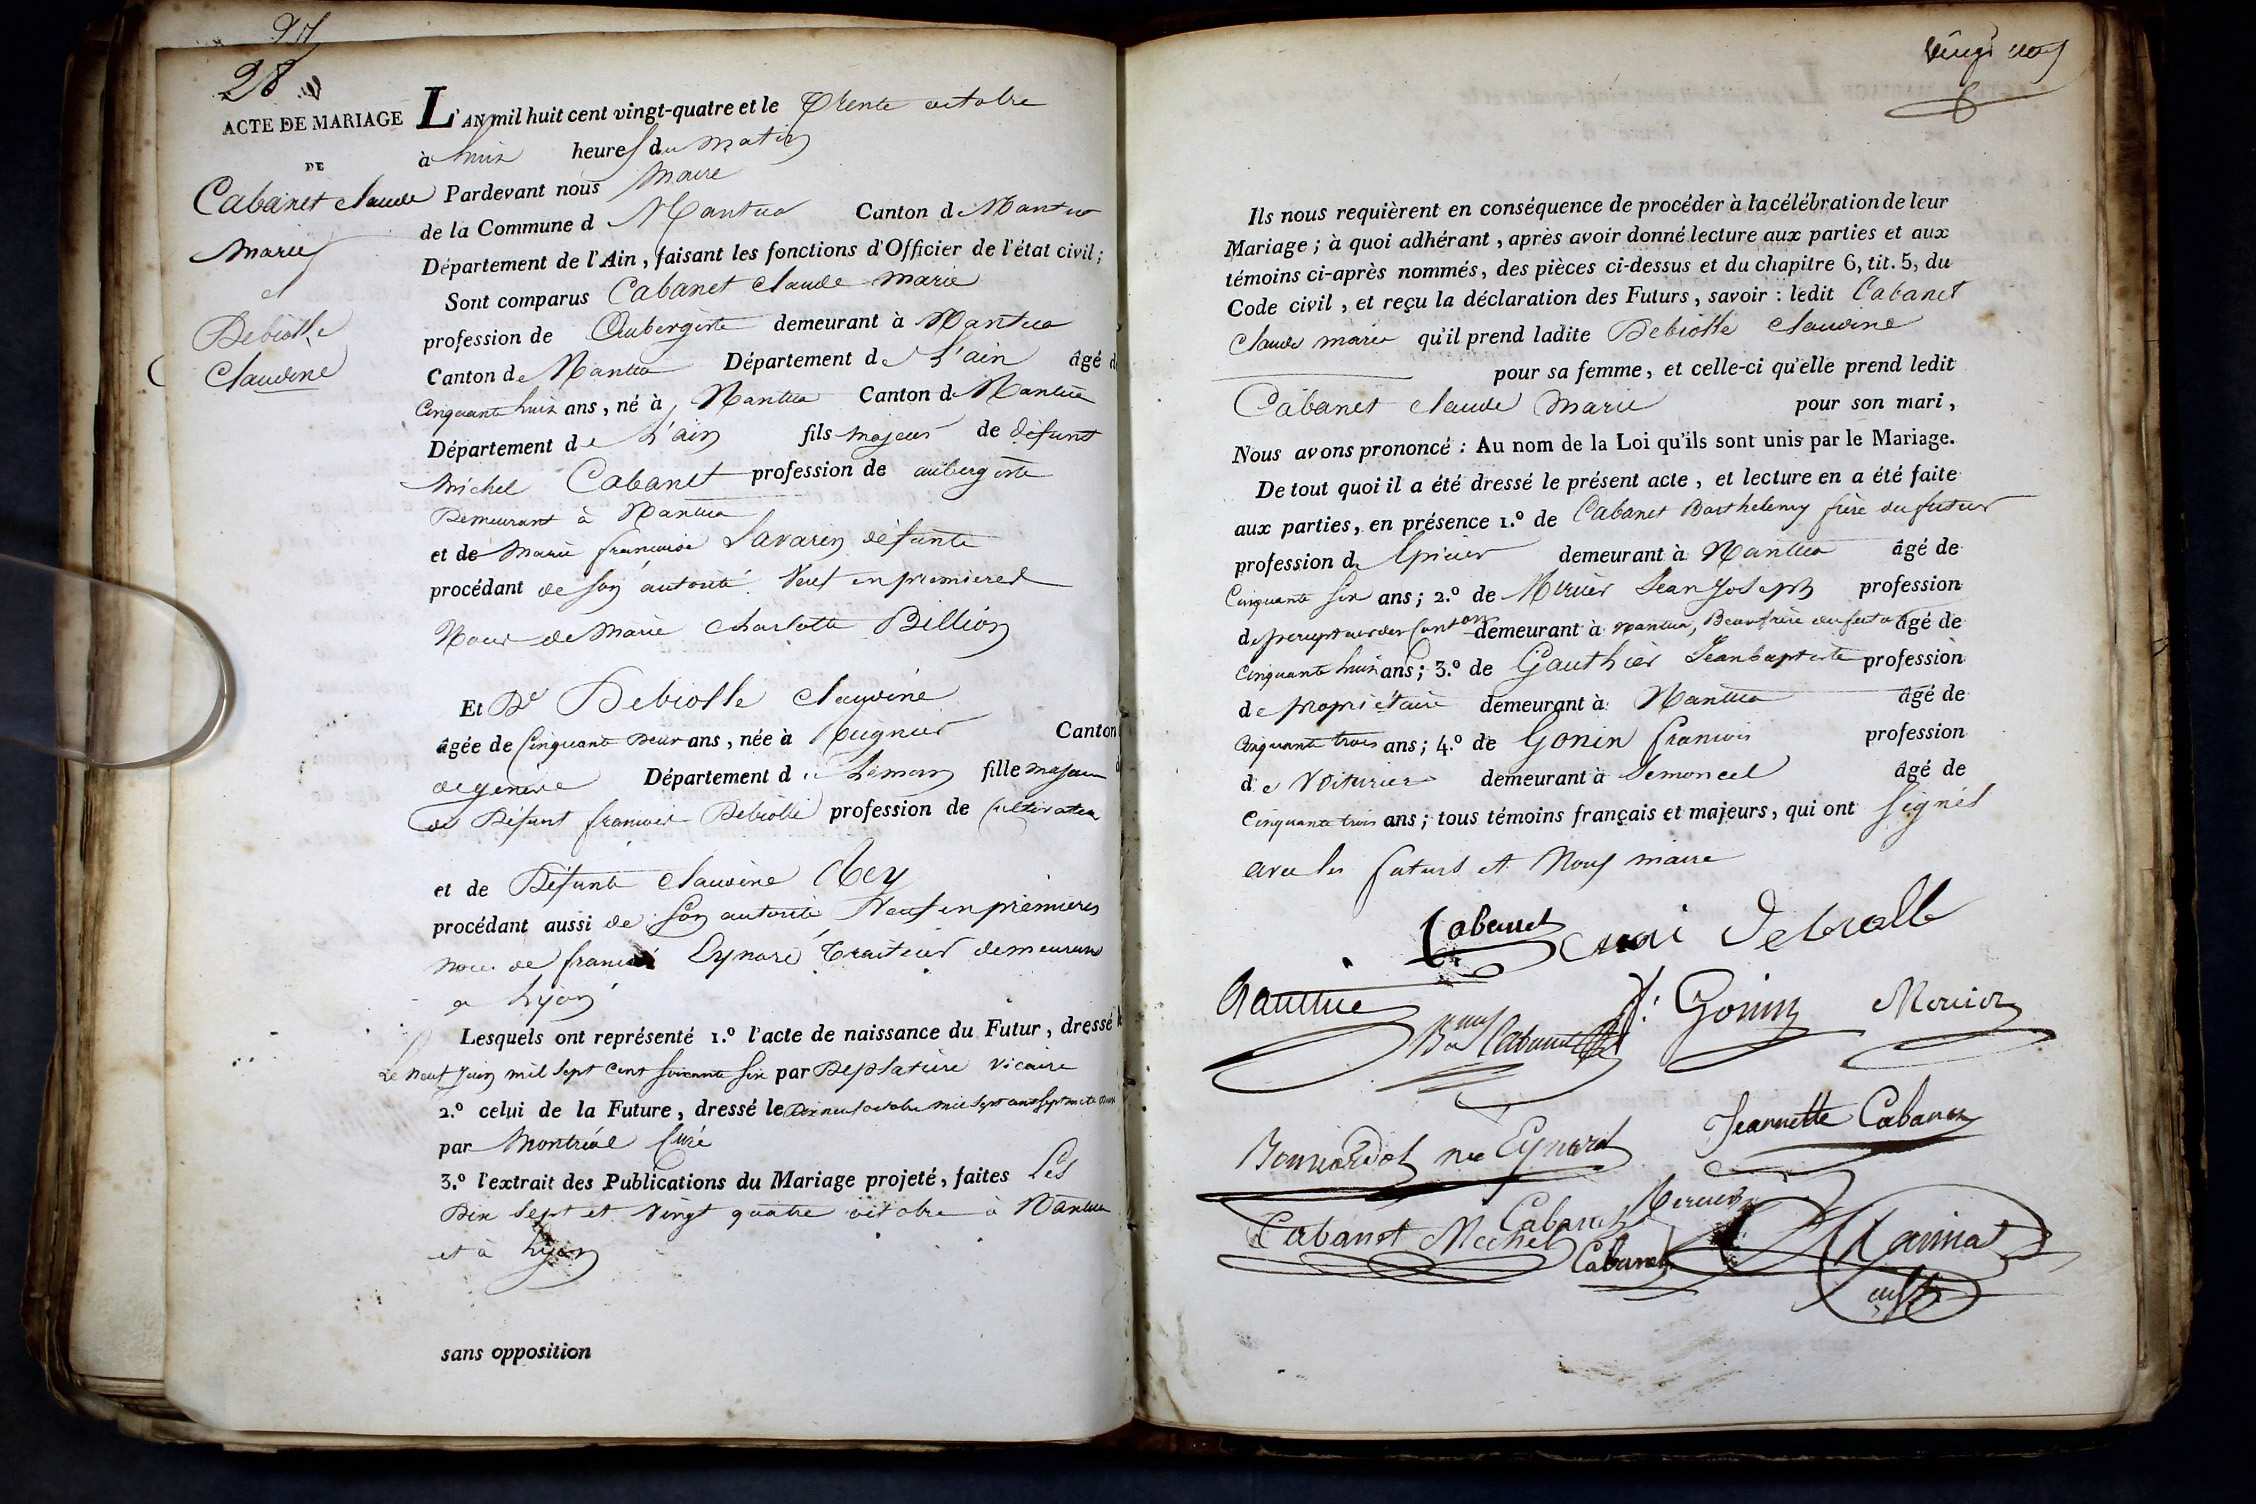 28
ACTE DE MARIAGE
DE
Cabanet Claude
Marie
et
Debiolle
Claudine
L'AN mil huit cent vingt-quatre et le Trente octobre
à huit heures du matin
Pardevant nous Maire
de la Commune de Nantua Canton de Nantua
Département de l'Ain, faisant les fonctions d'Officier de l'état civil;
Sont comparus Cabanet Claude Marie
profession de Aubergiste demeurant à Nantua
Canton de Nantua Département de L'ain âgé de
Cinquante huit ans, né à Nantua Canton de Nantua
Département de L'ain fils majeur de défunt
Michel Cabanet profession de aubergiste
Demeurant à Nantua
et de Marie françoise Savarin défunte
procédant de son autorité Veuf en premieres
Noces de Marie Charlotte Billion
Et De Debiolle Claudine
âgée de Cinquante Deux ans, née à Canton
de genève Département de Léman fille majeure
de Défunt francois Debiolle profession de Cultivateur
et de Défunte Claudine Rey
procédant aussi de son autorité Veuf en premieres
noces de francois Eynard Traiteur demeurant
a Lyon
Lesquels ont représenté 1.º l'acte de naissance du Futur, dressé
Le neuf Juin mil sept cent soixante six par Deplatiere Vicaire
2.º celui de la Future, dressé le Dix neuf octobre mil sept cent septante deux
par Montréal Curé
3.º l'extrait des Publications du Mariage projeté, faites Les
Dix sept et Vingt quatre octobre à Nantua
et à Lyon
sans opposition
vingt neuf
Ils nous requièrent en conséquence de procéder à la célébration de leur
Mariage; à quoi adhérant, après avoir donné lecture aux parties et aux
témoins ci-après nommés, des pièces ci-dessus et du chapitre 6, tit. 5, du
Code civil, et reçu la déclaration des Futurs, savoir : ledit Cabanet
Claude marie qu'il prend ladite Debiolle Claudine
pour sa femme, et celle-ci qu'elle prend ledit
Cabanet Claude Marie pour son mari,
Nous avons prononcé : Au nom de la Loi qu'ils sont unis par le Mariage.
De tout quoi il a été dressé le présent acte, et lecture en a été faite
aux parties, en présence 1.º de Cabanet Barthelemy frère du futur
profession de Epicier demeurant à Nantua âgé de
Cinquante six ans; 2.º de Mercier Jean Joseph profession
de percepteur des Cantons demeurant à Nantua, Beaufrère du futur âgé de
Cinquante huit ans; 3.º de Gauthier Jean baptiste profession
de propriétaire demeurant à Nantua âgé de
Cinquante trois ans; 4.º de Gonin francois profession
de Voiturier demeurant à Semoncel âgé de
Cinquante trois ans; tous témoins français et majeurs, qui ont signés
avec les futurs et Nous maire
Cabanet Debiolle
f. Gonin Mercier
Cabanet
née Eynard Jeannette Cabanet
Cabanet Mercier
Cabanet Michel
Cabanet